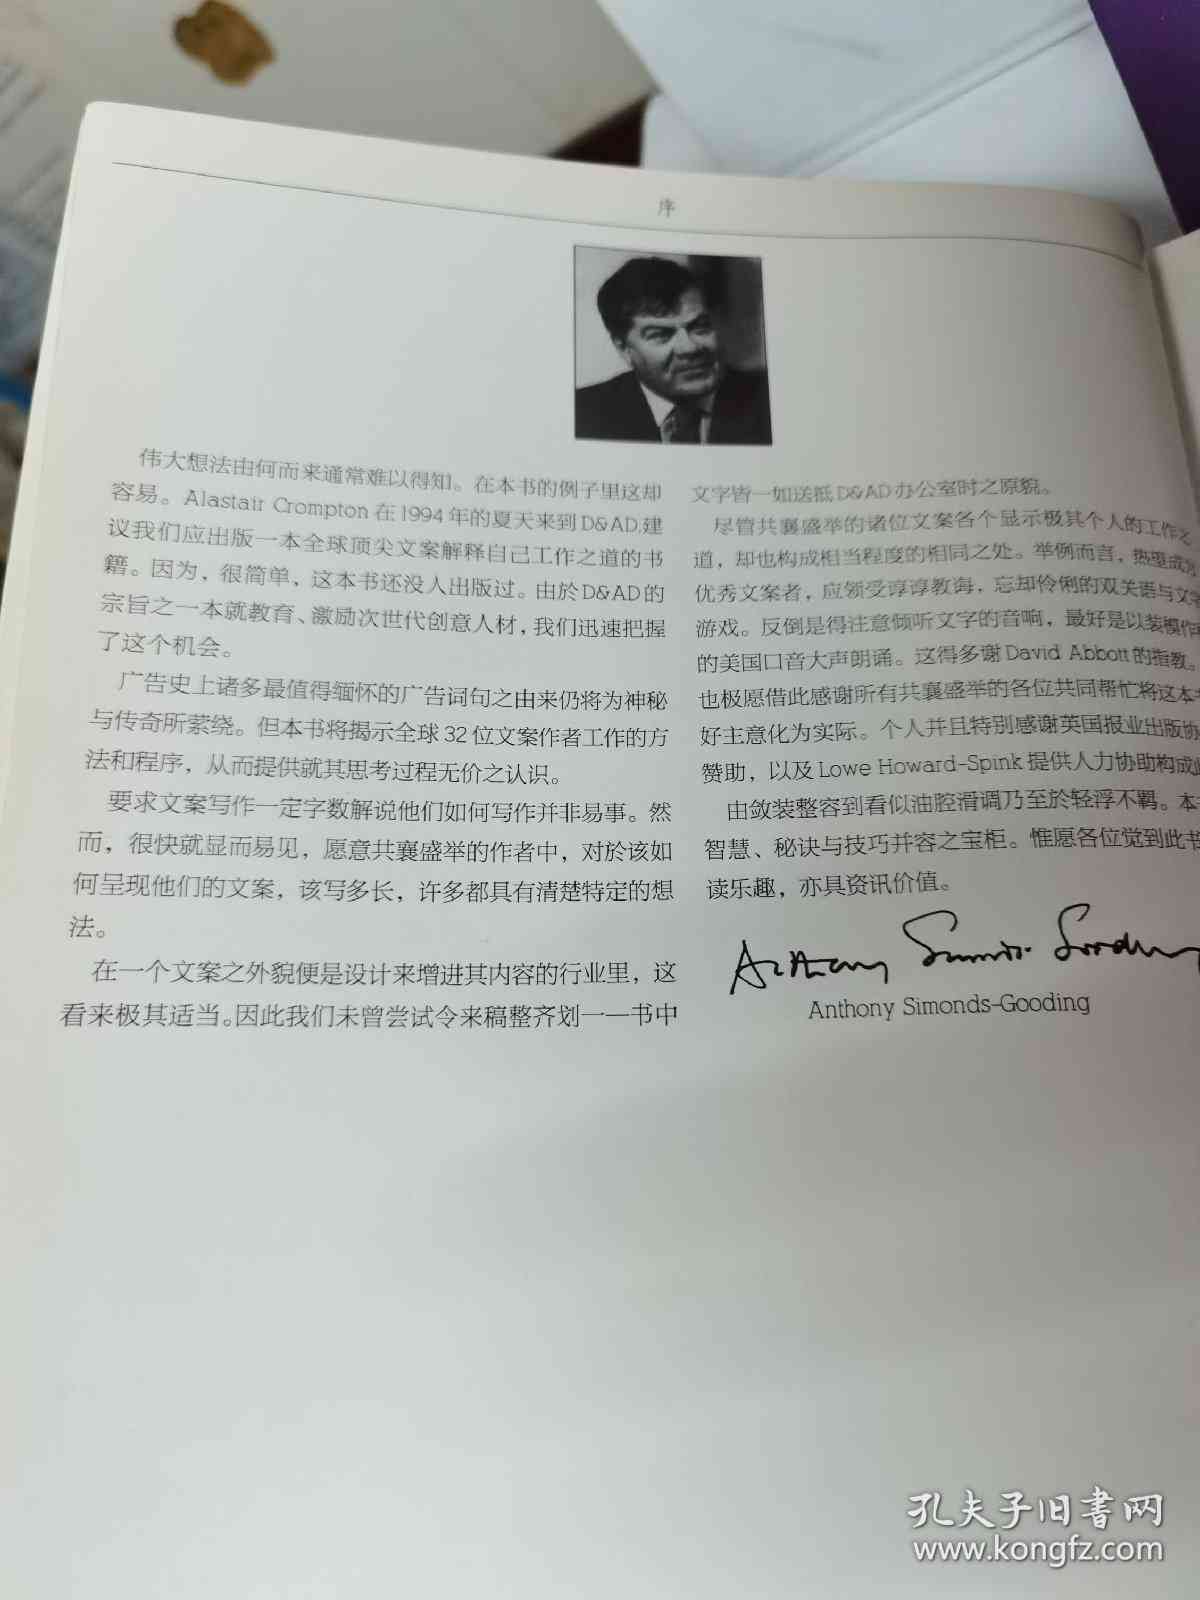 序
伟大想法由何而来通常难以得知。在本书的例子里这却
容易。Alastair Crompton 在 1994 年的夏天来到 D&AD,建
议我们应出版一本全球顶尖文案解释自己工作之道的书
籍。因为，很简单，这本书还没人出版过。由於 D&AD 的
宗旨之一本就教育、激励次世代创意人材，我们迅速把握
了这个机会。
广告史上诸多最值得缅怀的广告词句之由来仍将为神秘
与传奇所萦绕。但本书将揭示全球 32 位文案作者工作的方
法和程序，从而提供就其思考过程无价之认识。
要求文案写作一定字数解说他们如何写作并非易事。然
而，很快就显而易见，愿意共襄盛举的作者中，对於该如
何呈现他们的文案，该写多长，许多都具有清楚特定的想
法。
在一个文案之外貌便是设计来增进其内容的行业里，这
看来极其适当。因此我们未曾尝试令来稿整齐划一——书中
文字皆一如送抵 D&AD 办公室时之原貌。
尽管共襄盛举的诸位文案各个显示极其个人的工作之
道，却也构成相当程度的相同之处。举例而言，热望成为
优秀文案者，应领受谆谆教诲，忘却伶俐的双关语与文字
游戏。反倒是得注意倾听文字的音响，最好是以装模作
的美国口音大声朗诵。这得多谢 David Abbott 的指教。
也极愿借此感谢所有共襄盛举的各位共同帮忙将这本
好主意化为实际。个人并且特别感谢英国报业出版协
赞助，以及 Lowe Howard-Spink 提供人力协助构成
由敛装整容到看似油腔滑调乃至於轻浮不羁。本
智慧、秘诀与技巧并容之宝柜。惟愿各位觉到此书
读乐趣，亦具资讯价值。
Anthony Simonds-Gooding
Anthony Simonds-Gooding
孔夫子旧书网
www.kongfz.com